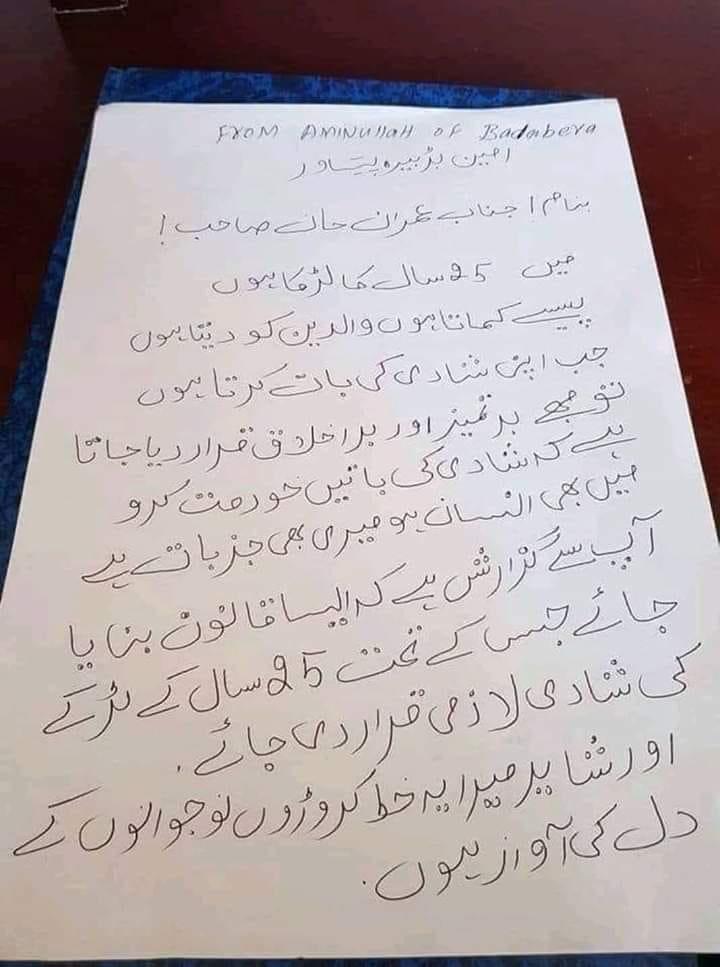 From Aminullah of Badabera
امین بڑبیرہ پشاور
بنام! جناب عمران خان صاحب!
میں 25 سال کا لڑکا ہوں
پیسے کماتا ہوں والدین کو دیتا ہوں
جب اپنی شادی کی بات کرتا ہوں
تو مجھے بدتمیز اور بداخلاق قرار دیا جاتا
ہے کہ شادی کی باتیں خود مت کرو
میں بھی انسان ہو میری بھی جزبات ہے
آپ سے گزارش ہے کہ ایسا قانون بنایا
جائے جس کے تحت 25 سال کے لڑکے
کی شادی لازمی قرار دی جائے.
اور شاید میرا یہ خط کروڑوں نوجوانوں کے
دل کی آواز ہوں.